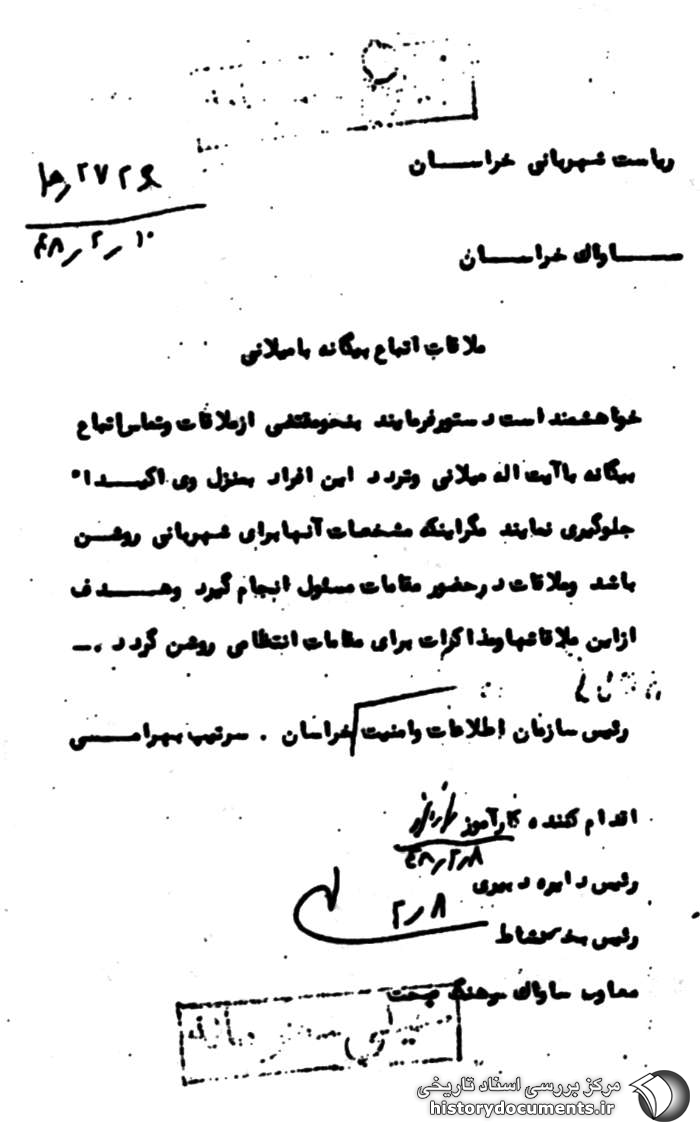 ریاست شهربانی خراســـان
۲۷۲۶
۴۸٫۲٫۱۰
ســـاواک خراســـان
ملاقات اتباع بیگانه با میلانی
خواهشمند است دستور فرمایند بنحو مقتضی از ملاقات و تماس اتباع
بیگانه با آیت اله میلانی و تردد این افراد بمنزل وی اکیـــدا"
جلوگیری نمایند مگر اینکه مشخصات آنها برای شهربانی روشــن
باشد و ملاقات در حضور مقامات مسئول انجام گیرد و هـــدف
از این ملاقاتها و مذاکرات برای مقامات انتظامی روشن گردد .ـ
رئیس سازمان اطلاعات و امنیت خراسان . سرتیپ بهرامـــی
اقدام کننده کارآموز
۴۸٫۲٫۸
رئیس دایره دبیری
۲٫۸
رئیس
معاون ساواک سرهنگ
مرکز بررسی اسناد تاریخی
historydocuments.ir